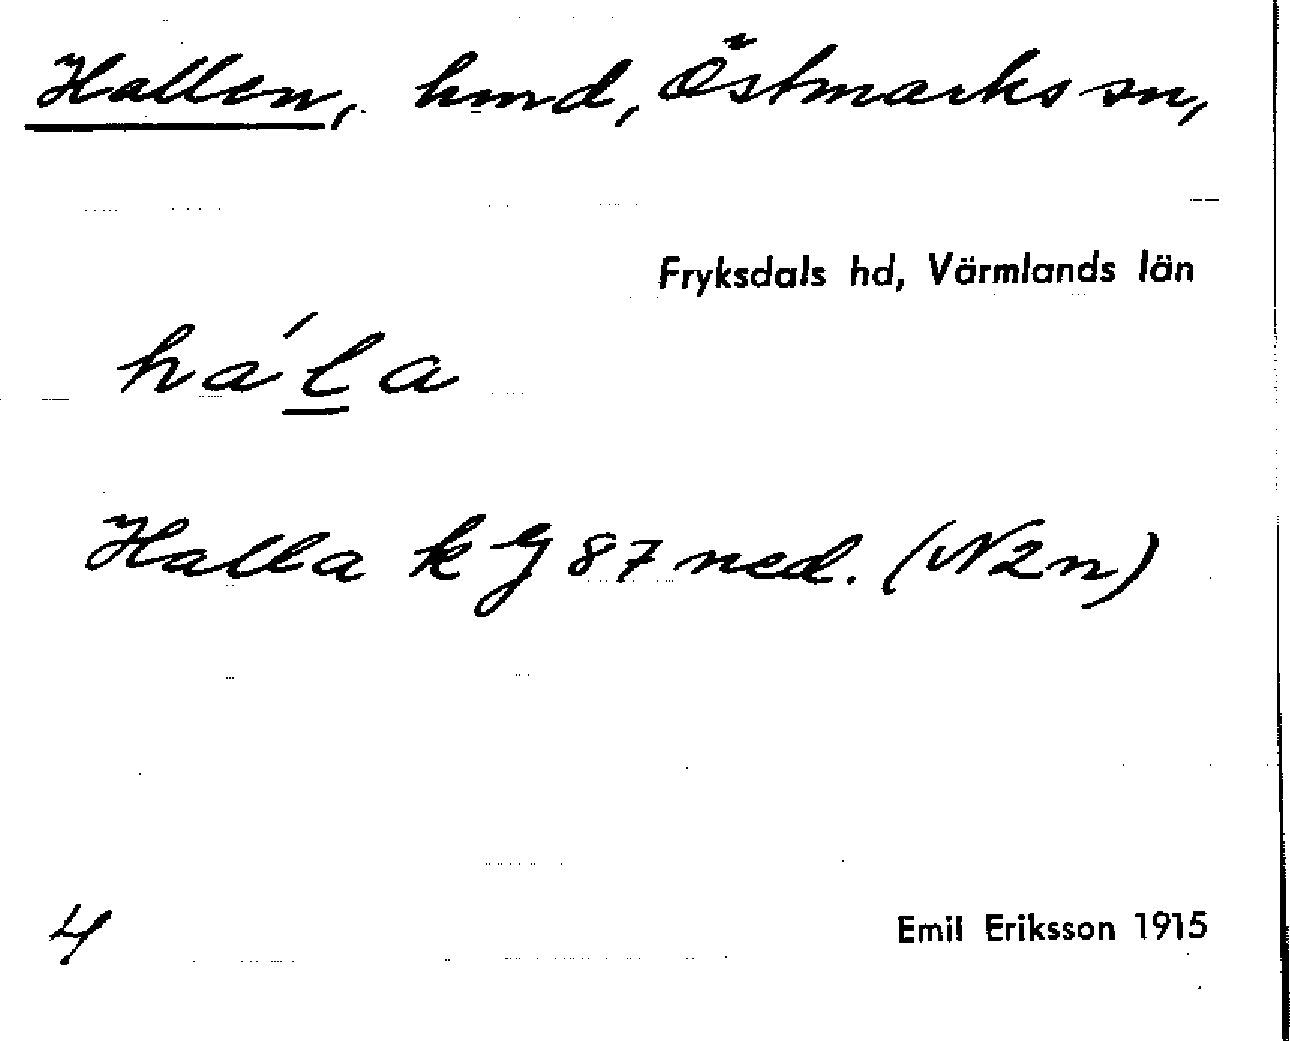 Hallen, hmd, Östmarks sn,
Fryksdals hd, Värmlands län
há́la
Halla k G 87 ned. (N2n)
4
Emil Eriksson 1915